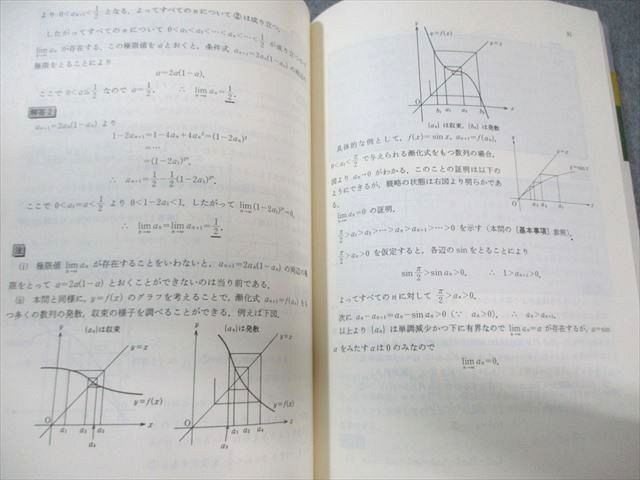 より 0<aₙ₊₁<1/2 となる。よってすべての n について ② は成り立つ。
したがってすべての n について 0<a₁<a₂<…<aₙ<…<1/2 が成り立つ
lim aₙ が存在する。この極限値を a とおくと、条件式 aₙ₊₁=2aₙ(1-aₙ) の
n→∞
極限をとることにより
a=2a(1-a).
ここで 0<a≦1/2 なので a=1/2. ∴ lim aₙ=1/2.
n→∞
解答2
aₙ₊₁=2aₙ(1-aₙ) より
1-2aₙ₊₁=1-4aₙ+4aₙ²=(1-2aₙ)²
=…
=(1-2a₁)^{2ⁿ}.
∴ aₙ₊₁=1/2-1/2(1-2a₁)^{2ⁿ}.
ここで 0<a₁=a<1/2 より 0<1-2a₁<1. したがって lim(1-2a₁)^{2ⁿ}=0.
n→∞
∴ lim aₙ=lim aₙ₊₁=1/2.
n→∞ n→∞
注
(i) 極限値 lim aₙ が存在することをいわないと、aₙ₊₁=2aₙ(1-aₙ) の両辺の極
n→∞
限をとって a=2a(1-a) とおくことができないのは当り前である。
(ii) 本問と同様に、y=f(x) のグラフを考えることで、漸化式 aₙ₊₁=f(aₙ) をも
つ多くの数列の発散、収束の様子を調べることができる。例えば下図。
{aₙ}は収束
y=x
y=f(x)
O a₁ a₃ a₂ x
a₄
{aₙ}は発散
y=x
y=f(x)
O a₁ a₂ a₄ x
a₃
y=f(x)
y=x
O b₁ a₁ a₂ x
{aₙ}は収束、{bₙ}は発散
具体的な例として、f(x)=sin x, aₙ₊₁=f(aₙ),
0<a₁<π/2 で与えられる漸化式をもつ数列の場合、
図より aₙ→0 がわかる。このことの証明は以下の
ようにできるが、概略の状態は右図より明らかであ
る。
y
y=x
y=sin x
O a₃ a₂ a₁ x
lim aₙ=0 の証明.
n→∞
π/2>a₁>a₂>…>aₙ>aₙ₊₁>…>0 を示す（本問の［基本事項］参照）.
π/2>aₙ>0 を仮定すると、各辺の sin をとることにより
sin π/2>sin aₙ>0. ∴ 1>aₙ₊₁>0.
よってすべての n に対して π/2>aₙ>0.
次に aₙ-aₙ₊₁=aₙ-sin aₙ>0 (∵ aₙ>0). ∴ aₙ>aₙ₊₁.
以上より {aₙ} は単調減少かつ下に有界なので lim aₙ=α が存在するが、α=sin
n→∞
α をみたす α は 0 のみなので
lim aₙ=0.
n→∞